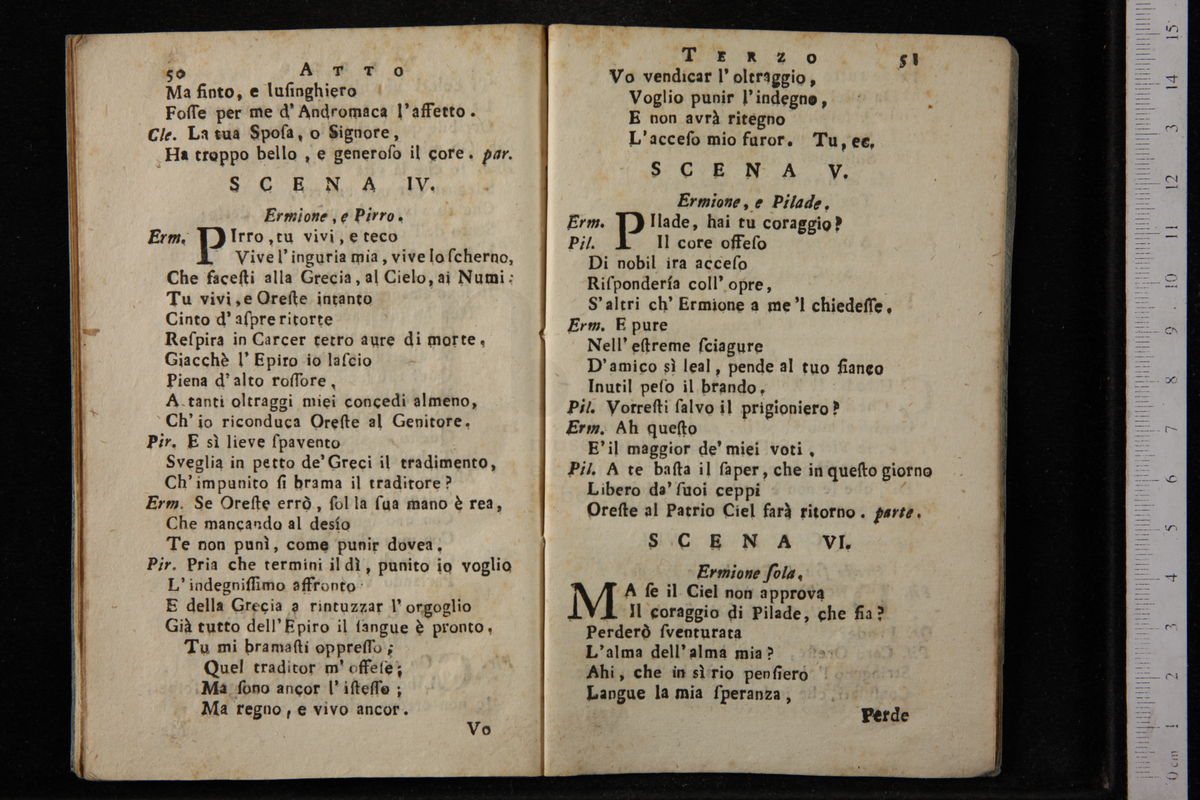 50 ATTO
Ma finto, e luſinghiero
Foſſe per me d' Andromaca l'affetto.
Cle. La tua Spoſa, o Signore,
Ha troppo bello, e generoſo il core. par.
SCENA IV.
Ermione, e Pirro.
Erm. PIrro, tu vivi, e teco
Vive l'inguria mia, vive lo ſcherno,
Che faceſti alla Grecia, al Cielo, ai Numi:
Tu vivi, e Oreſte intanto
Cinto d' aſpre ritorte
Reſpira in Carcer tetro aure di morte,
Giacchè l' Epiro io laſcio
Piena d' alto roſſore,
A tanti oltraggi miei concedi almeno,
Ch' io riconduca Oreſte al Genitore.
Pir. E sì lieve ſpavento
Sveglia in petto de' Greci il tradimento,
Ch' impunito ſi brama il traditore?
Erm. Se Oreſte errò, ſol la ſua mano è rea,
Che mancando al desío
Te non punì, come punir dovea.
Pir. Pria che termini il dì, punito io voglio
L' indegniſſimo affronto
E della Grecia a rintuzzar l' orgoglio
Già tutto dell' Epiro il ſangue è pronto.
Tu mi bramaſti oppreſſo;
Quel traditor m' offeſe;
Ma ſono ancor l' iſteſſo;
Ma regno, e vivo ancor.
Vo
TERZO 51
Vo vendicar l' oltraggio,
Voglio punir l'indegno,
E non avrà ritegno
L'acceſo mio furor. Tu, ec.
SCENA V.
Ermione, e Pilade.
Erm. PIlade, hai tu coraggio?
Pil. Il core offeſo
Di nobil ira acceſo
Riſpondería coll' opre,
S' altri ch' Ermione a me 'l chiedeſſe.
Erm. E pure
Nell' eſtreme ſciagure
D' amico sì leal, pende al tuo fianco
Inutil peſo il brando.
Pil. Vorreſti ſalvo il prigioniero?
Erm. Ah queſto
E' il maggior de' miei voti.
Pil. A te baſta il ſaper, che in queſto giorno
Libero da' ſuoi ceppi
Oreſte al Patrio Ciel farà ritorno. parte.
SCENA VI.
Ermione ſola.
MA ſe il Ciel non approva
Il coraggio di Pilade, che fia?
Perderò ſventurata
L'alma dell' alma mia?
Ahi, che in sì rio penſiero
Langue la mia ſperanza,
Perde
0 cm 1 2 3 4 5 6 7 8 9 10 11 12 13 14 15